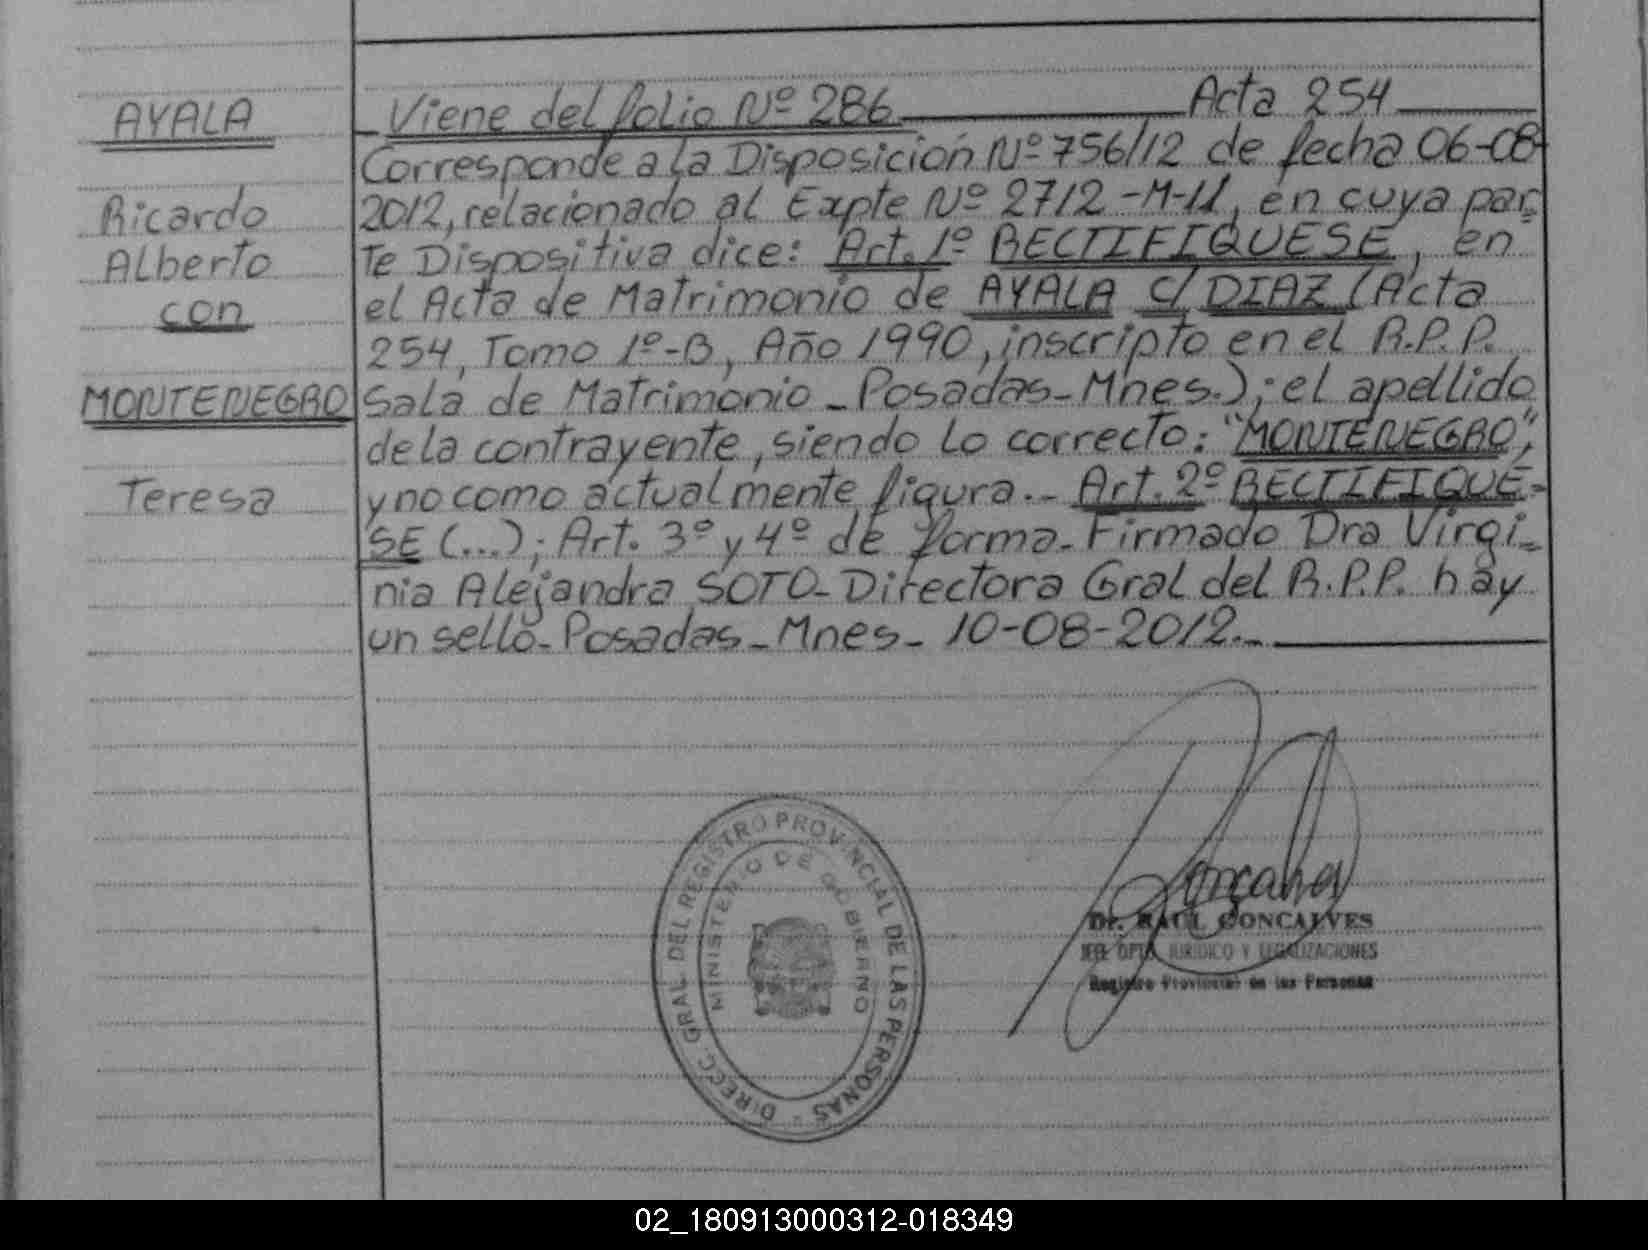 AYALA
Ricardo
Alberto
con
MONTENEGRO
Teresa
Viene del folio Nº 286 Acta 254
Corresponde a la Disposición Nº 756/12 de fecha 06-08-
2012, relacionado al Expte Nº 2712-M-11, en cuya par=
te Dispositiva dice: Art. 1º RECTIFIQUESE, en
el Acta de Matrimonio de AYALA C/ DIAZ (Acta
254, Tomo 1º-B, Año 1990, inscripto en el R.P.P.
Sala de Matrimonio - Posadas - Mnes.); el apellido
de la contrayente, siendo lo correcto: "MONTENEGRO",
y no como actualmente figura.- Art. 2º RECTIFIQUE=
SE (...); Art. 3º y 4º de forma. Firmado Dra Virgi=
nia Alejandra SOTO - Directora Gral del R.P.P. hay
un sello - Posadas - Mnes - 10-08-2012.-
DIRECC. GRAL. DEL REGISTRO PROVINCIAL DE LAS PERSONAS
MINISTERIO DE GOBIERNO
Goncalves
Dr. RAUL GONCALVES
JEFE DPTO. JURIDICO Y LEGALIZACIONES
Registro Provincial de las Personas
02_180913000312-018349